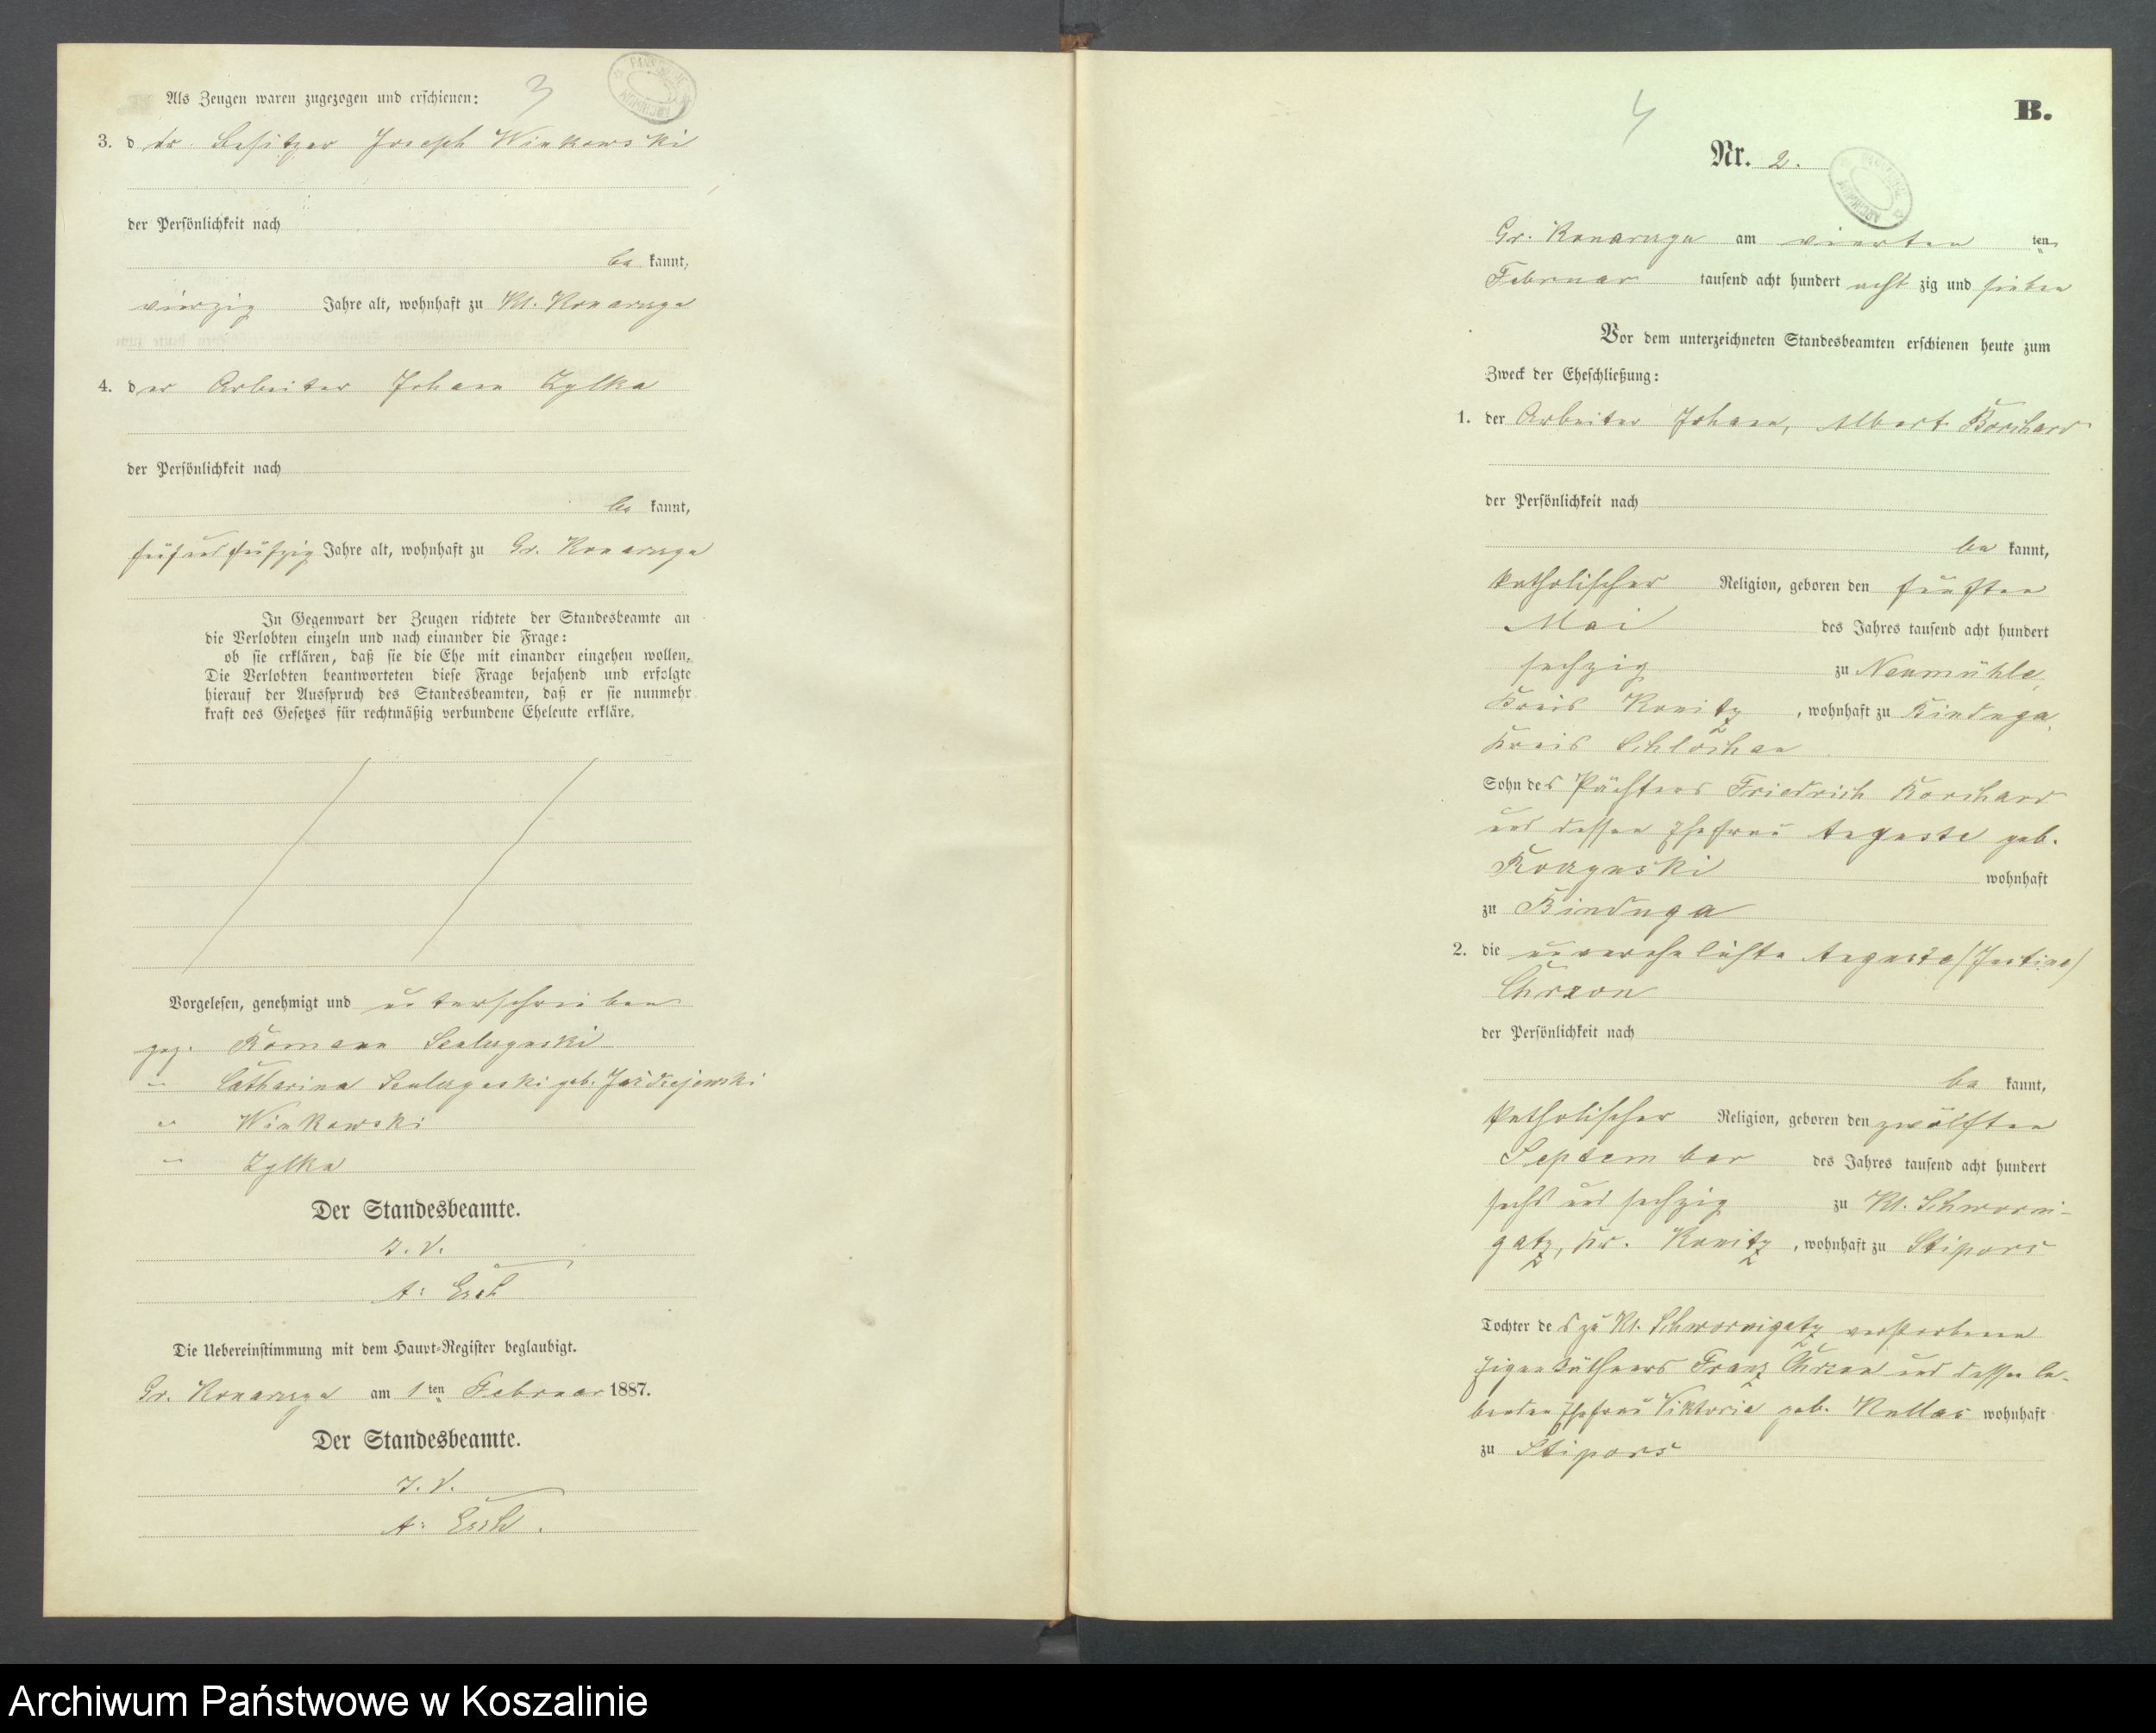 Als Zeugen waren zugezogen und erschienen:
3
3. der Besitzer Joseph Winkowski
der Persönlichkeit nach
be kannt,
vierzig Jahre alt, wohnhaft zu Kl. Konarzyn
4. der Arbeiter Johann Zylka
der Persönlichkeit nach
be kannt,
fünfundfünfzig Jahre alt, wohnhaft zu Gr. Konarzyn
In Gegenwart der Zeugen richtete der Standesbeamte an
die Verlobten einzeln und nach einander die Frage:
ob sie erklären, daß sie die Ehe mit einander eingehen wollen.
Die Verlobten beantworteten diese Frage bejahend und erfolgte
hierauf der Ausspruch des Standesbeamten, daß er sie nunmehr
kraft des Gesetzes für rechtmäßig verbundene Eheleute erkläre.
Vorgelesen, genehmigt und unterschrieben
gez. Romann
" Catharina geb.
" Winkowski
" Zylka
Der Standesbeamte.
I. V.
A. Esch
Die Uebereinstimmung mit dem Haupt-Register beglaubigt.
Gr. Konarzyn am 1 ten Februar 1887.
Der Standesbeamte.
I. V.
A. Esch.
4
B.
Nr. 2.
Gr. Konarzyn am vierten ten
Februar tausend acht hundert acht zig und sieben
Vor dem unterzeichneten Standesbeamten erschienen heute zum
Zweck der Eheschließung:
1. der Arbeiter Johann, Albert Borchard
der Persönlichkeit nach
be kannt,
katholischer Religion, geboren den fünften
Mai des Jahres tausend acht hundert
sechzig zu Neumühle,
Kreis Konitz, wohnhaft zu Binduga,
Kreis Schlochau
Sohn des Pächters Friedrich Borchard
und dessen Ehefrau Auguste geb.
wohnhaft
zu Binduga
2. die unverehelichte Auguste (Justine)
Chrzon
der Persönlichkeit nach
be kannt,
katholischer Religion, geboren den zwölften
September des Jahres tausend acht hundert
sechs und sechzig zu Kl. Schworni-
gatz, Kr. Konitz, wohnhaft zu Stipors
Tochter des zu Kl. Schwornigatz verstorbenen
Eigenkäthners Franz Chrzon und dessen le-
benden Ehefrau Viktoria geb. Kullas wohnhaft
zu Stipors
Archiwum Państwowe w Koszalinie